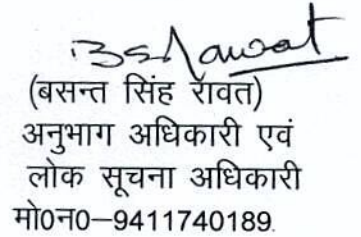 BSRawat
(बसन्त सिंह रॉवत)
अनुभाग अधिकारी एवं
लोक सूचना अधिकारी
मो0न0–9411740189.